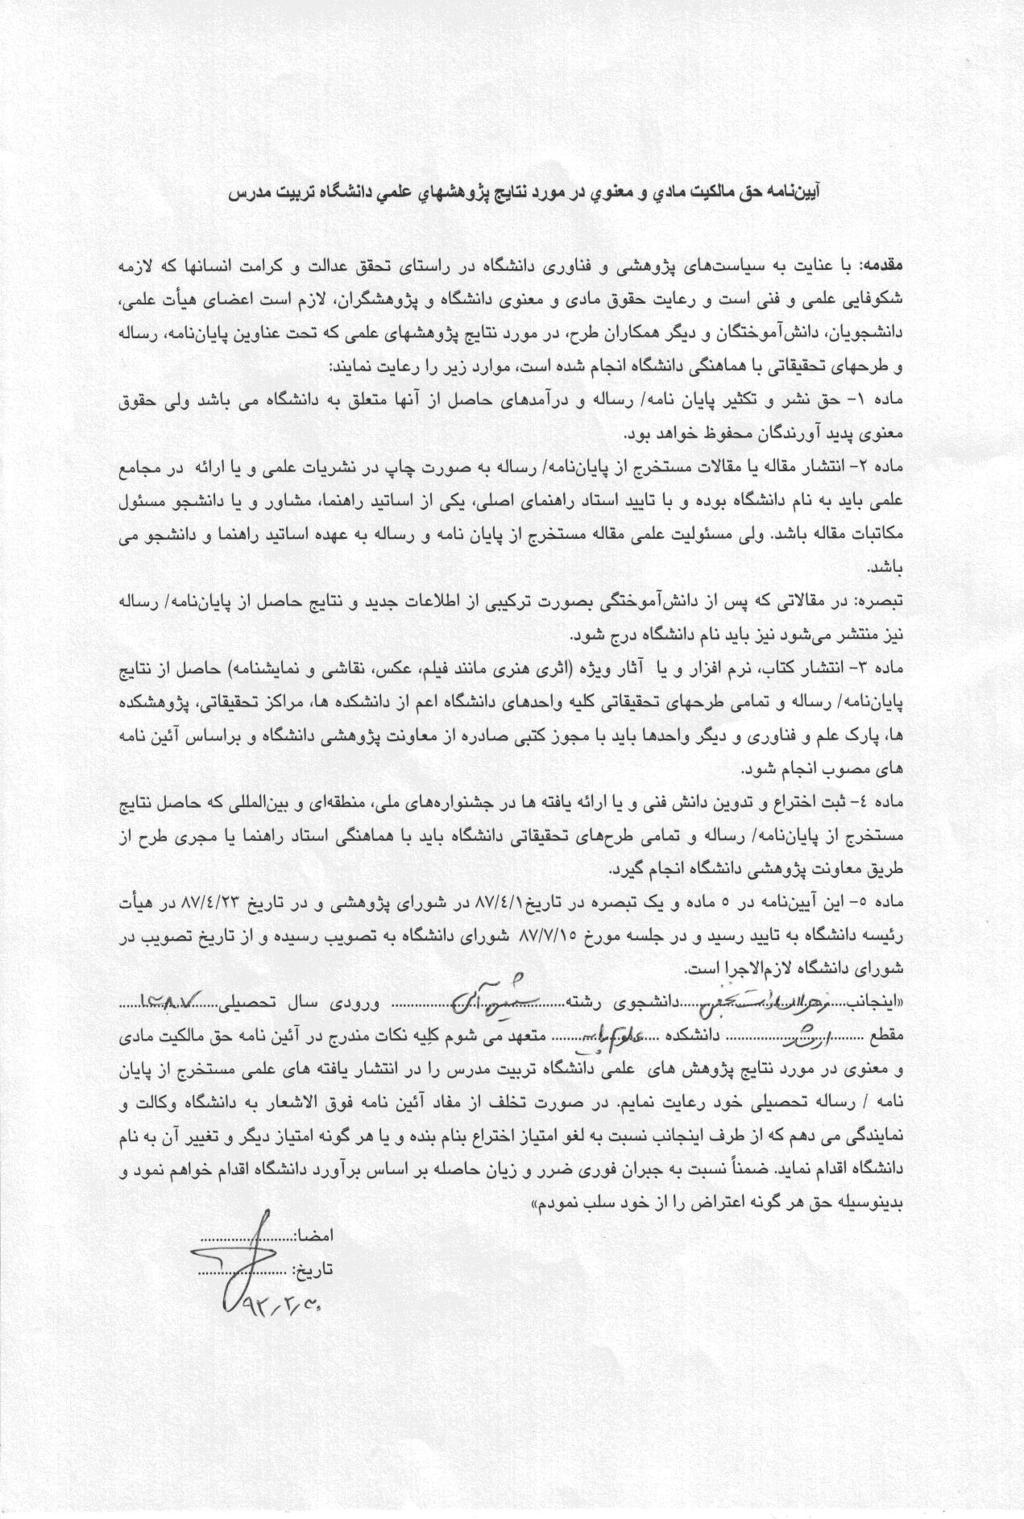 آیین‌نامه حق مالکیت مادي و معنوي در مورد نتایج پژوهشهاي علمي دانشگاه تربیت مدرس
مقدمه: با عنایت به سیاست‌های پژوهشی و فناوری دانشگاه در راستای تحقق عدالت و کرامت انسانها که لازمه
شکوفایی علمی و فنی است و رعایت حقوق مادی و معنوی دانشگاه و پژوهشگران، لازم است اعضای هیأت علمی،
دانشجویان، دانش‌آموختگان و دیگر همکاران طرح، در مورد نتایج پژوهشهای علمی که تحت عناوین پایان‌نامه، رساله
و طرحهای تحقیقاتی با هماهنگی دانشگاه انجام شده است، موارد زیر را رعایت نمایند:
ماده ۱- حق نشر و تکثیر پایان نامه/ رساله و درآمدهای حاصل از آنها متعلق به دانشگاه می باشد ولی حقوق
معنوی پدید آورندگان محفوظ خواهد بود.
ماده ۲- انتشار مقاله یا مقالات مستخرج از پایان‌نامه/ رساله به صورت چاپ در نشریات علمی و یا ارائه در مجامع
علمی باید به نام دانشگاه بوده و با تایید استاد راهنمای اصلی، یکی از اساتید راهنما، مشاور و یا دانشجو مسئول
مکاتبات مقاله باشد. ولی مسئولیت علمی مقاله مستخرج از پایان نامه و رساله به عهده اساتید راهنما و دانشجو می
باشد.
تبصره: در مقالاتی که پس از دانش‌آموختگی بصورت ترکیبی از اطلاعات جدید و نتایج حاصل از پایان‌نامه/ رساله
نیز منتشر می‌شود نیز باید نام دانشگاه درج شود.
ماده ۳- انتشار کتاب، نرم افزار و یا آثار ویژه (اثری هنری مانند فیلم، عکس، نقاشی و نمایشنامه) حاصل از نتایج
پایان‌نامه/ رساله و تمامی طرحهای تحقیقاتی کلیه واحدهای دانشگاه اعم از دانشکده ها، مراکز تحقیقاتی، پژوهشکده
ها، پارک علم و فناوری و دیگر واحدها باید با مجوز کتبی صادره از معاونت پژوهشی دانشگاه و براساس آئین نامه
های مصوب انجام شود.
ماده ٤- ثبت اختراع و تدوین دانش فنی و یا ارائه یافته ها در جشنواره‌های ملی، منطقه‌ای و بین‌المللی که حاصل نتایج
مستخرج از پایان‌نامه/ رساله و تمامی طرح‌های تحقیقاتی دانشگاه باید با هماهنگی استاد راهنما یا مجری طرح از
طریق معاونت پژوهشی دانشگاه انجام گیرد.
ماده ٥- این آیین‌نامه در ٥ ماده و یک تبصره در تاریخ۸۷/٤/۱ در شورای پژوهشی و در تاریخ ۸۷/٤/۲۳ در هیأت
رئیسه دانشگاه به تایید رسید و در جلسه مورخ ۸۷/۷/۱٥ شورای دانشگاه به تصویب رسیده و از تاریخ تصویب در
شورای دانشگاه لازم‌الاجرا است.
«اینجانب.......... دانشجوی رشته.......... ورودی سال تحصیلی....۱۳۸۷....
مقطع ....ارشد.... دانشکده ....علوم پایه.... متعهد می شوم کلیه نکات مندرج در آئین نامه حق مالکیت مادی
و معنوی در مورد نتایج پژوهش های علمی دانشگاه تربیت مدرس را در انتشار یافته های علمی مستخرج از پایان
نامه / رساله تحصیلی خود رعایت نمایم. در صورت تخلف از مفاد آئین نامه فوق الاشعار به دانشگاه وکالت و
نمایندگی می دهم که از طرف اینجانب نسبت به لغو امتیاز اختراع بنام بنده و یا هر گونه امتیاز دیگر و تغییر آن به نام
دانشگاه اقدام نماید. ضمناً نسبت به جبران فوری ضرر و زیان حاصله بر اساس برآورد دانشگاه اقدام خواهم نمود و
بدینوسیله حق هر گونه اعتراض را از خود سلب نمودم»
امضا:..........
تاریخ: ..........
۹۲/۲/۳۰